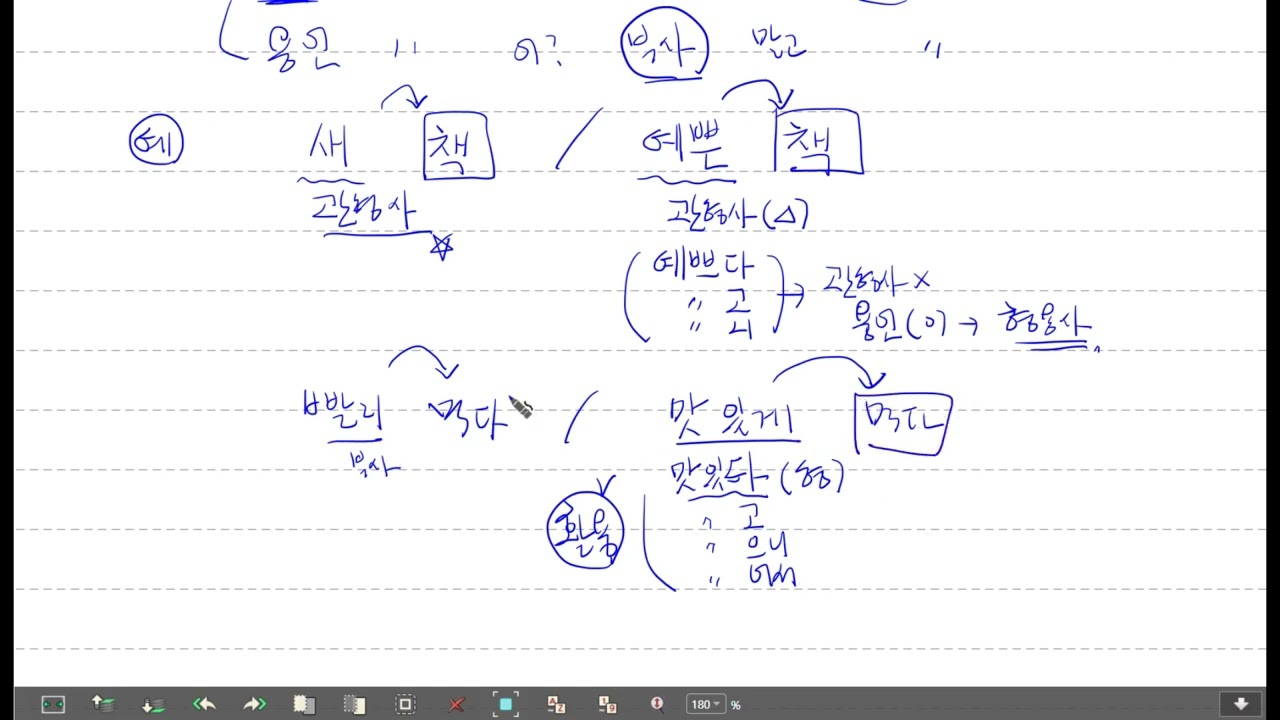 용언 〃 어? 부사 말고 〃
예 새 책 / 예쁜 책
관형사 ☆ 관형사(△)
예쁘다
〃 고 → 관형사 ×
〃 니 용언(어) → 형용사
빨리 먹다 / 맛있게 먹다
부사 맛있다 (형)
활용 〃 고
〃 으니
〃 어서
180 %